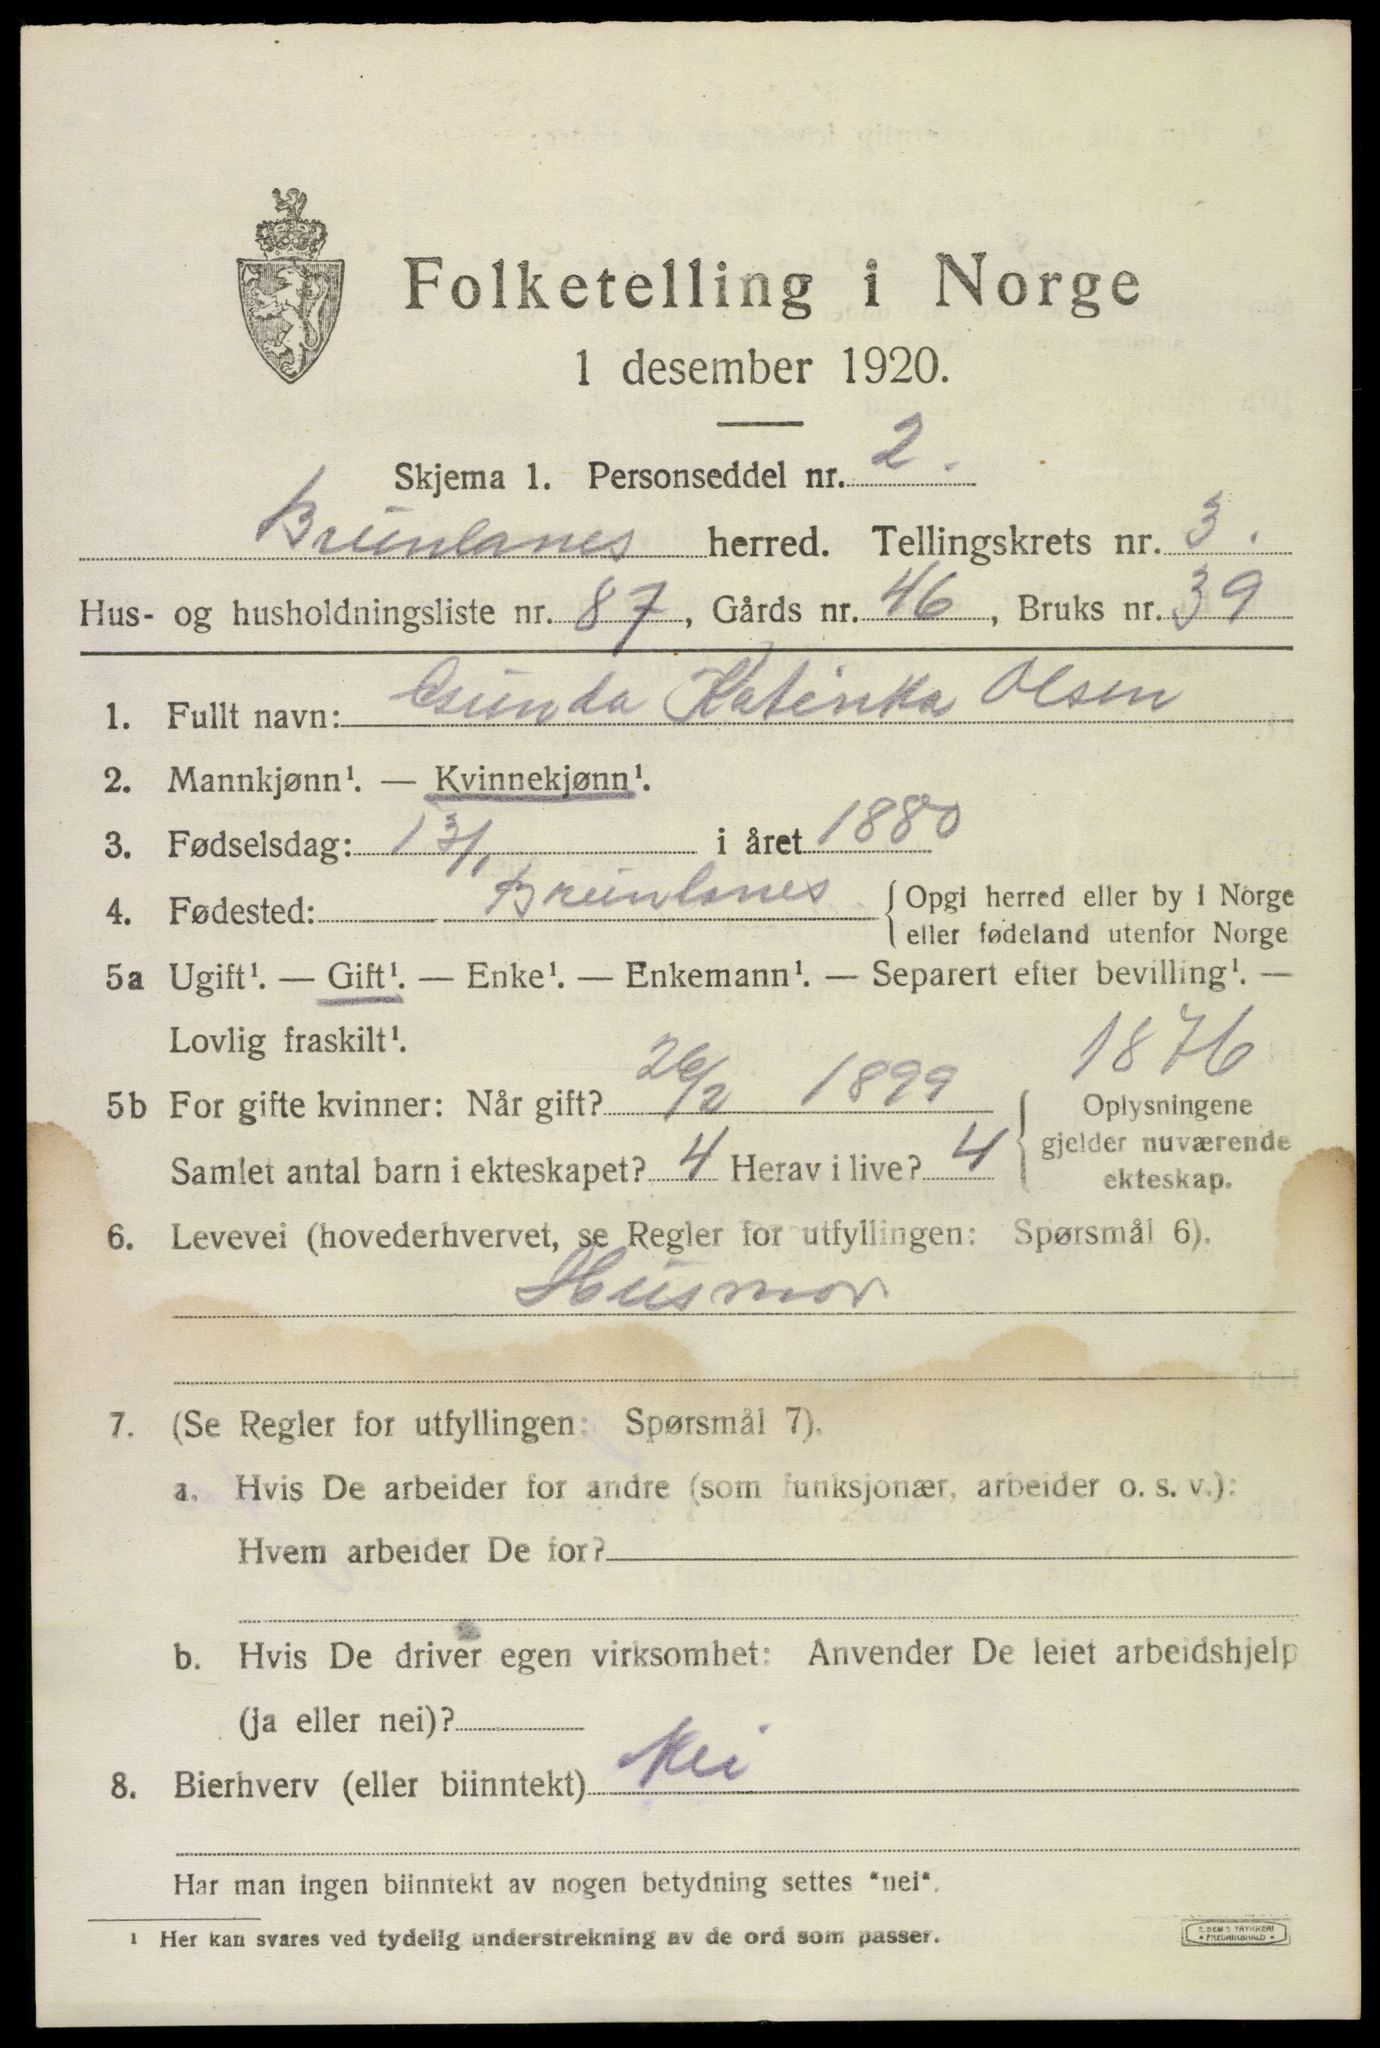 Folketelling i Norge
1 desember 1920.
Skjema 1. Personseddel nr. 2.
Brunlanes herred. Tellingskrets nr. 3.
Hus- og husholdningsliste nr. 87, Gårds nr. 46, Bruks nr. 39
1. Fullt navn: Gunda Katinka Olsen
2. Mannkjønn¹. — Kvinnekjønn¹.
3. Fødselsdag: 13/1 i året 1880
4. Fødested: Brunlanes { Opgi herred eller by i Norge
eller fødeland utenfor Norge
5a Ugift¹. — Gift¹. — Enke¹. — Enkemann¹. — Separert efter bevilling¹. —
Lovlig fraskilt¹.
1876
5b For gifte kvinner: Når gift? 26/2 1899 { Oplysningene
gjelder nuværende
ekteskap.
Samlet antal barn i ekteskapet? 4 Herav i live? 4
6. Levevei (hovederhvervet, se Regler for utfyllingen: Spørsmål 6).
Husmor
7. (Se Regler for utfyllingen: Spørsmål 7).
a. Hvis De arbeider for andre (som funksjonær, arbeider o. s. v.):
Hvem arbeider De for?
b. Hvis De driver egen virksomhet: Anvender De leiet arbeidshjelp
(ja eller nei)?
8. Bierhverv (eller biinntekt) Nei
Har man ingen biinntekt av nogen betydning settes "nei".
¹ Her kan svares ved tydelig understrekning av de ord som passer.
TRYKKERI
FREDRIKSHALD